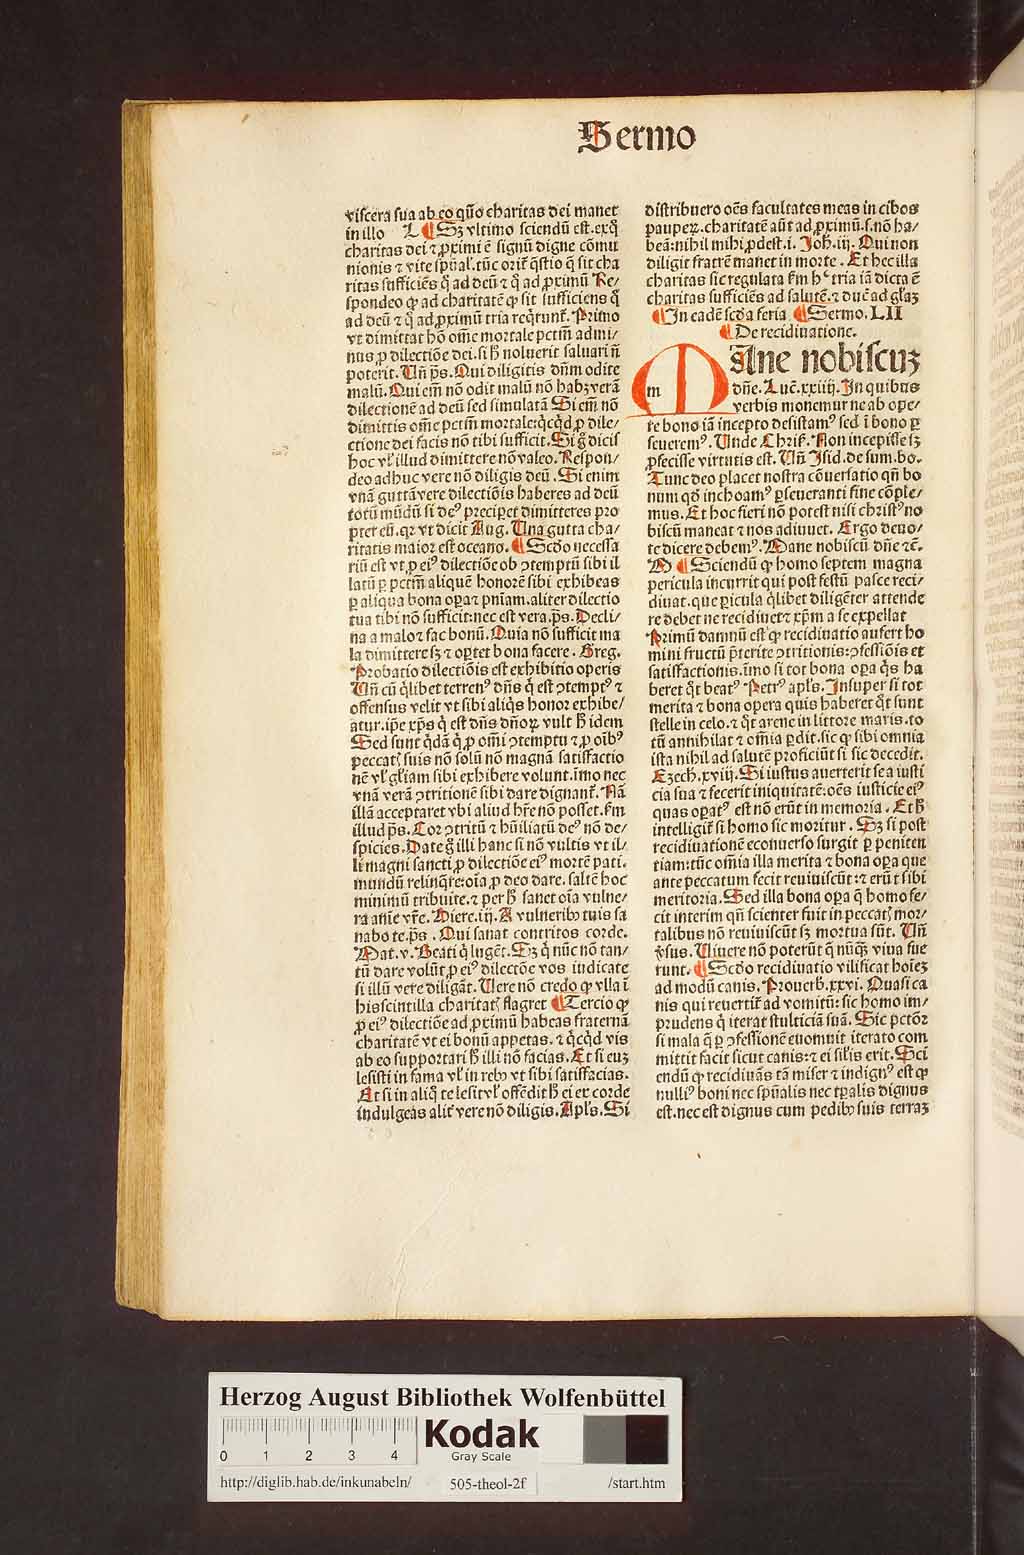 Sermo
viscera sua ab eo qūo charitas dei manet
in illo L ¶ Sʒ vltimo sciendū est. ex q̇
charitas dei ⁊ ꝓximi ē signū digne cōmu
nionis ⁊ vite spūal'. tūc orit̄ q̄stio q̄ sit cha
ritas sufficiēs q̄ ad deū ⁊ q̄ ad ꝓximū Re/
spondeo ꝙ ad charitatē ꝙ sit sufficiens q̄
ad deū ⁊ q̄ ad ꝓximū tria reqrunt̄. Primo
vt dimittat hō om̄e mortale pctm̄ admi/
nus ꝓ dilectiōe dei. si h̄ noluerit saluari n̄
poterit. Un̄ p̄s. Qui diligitis dn̄m odite
malū. Qui em̄ nō odit malū nō habʒ verā
dilectionē ad deū sed simulatā Si em̄ nō
dimittis om̄e pctm̄ mortale: qcqd ꝓ dile/
ctione dei facis nō tibi sufficit. Si g̊ dicis
hoc vl' illud dimittere nō valeo. Respon/
deo adhuc vere nō diligis deū. Si enim
vnā guttā vere dilectiōis haberes ad deū
totū mūdū si deꝰ preciperet dimitteres pro
pter eū. qꝛ vt dicit Aug. Una gutta cha/
ritatis maior est oceano. ¶ Scdo necessa
riū est vt ꝓ eiꝰ dilectiōe ob ↄtemptū sibi il
latū ꝑ pctm̄ aliquē honorē sibi exhibeas
ꝑ aliqua bona oꝑa ⁊ pn̄iam. aliter dilectio
tua tibi nō sufficit: nec est vera. p̄s. Decli/
na a malo ⁊ fac bonū. Quia nō sufficit ma
la dimittere sʒ ⁊ oꝑtet bona facere. Greg.
Probatio dilectiōis est exhibitio operis
Un̄ cū q̄libet terrenꝰ dn̄s q̄ est ↄtemptꝰ ⁊
offensus velit vt sibi aliq̄s honor exhibe/
atur. ip̄e xp̄s q̄ est dn̄s dn̄oꝝ vult h̄ idem
Sed sunt q̄dā q̄ ꝓ om̄i ↄtemptu ⁊ ꝓ oībꝰ
peccatꝭ suis nō solū nō magnā satisfactio
nē vl' gl'iam sibi exhibere volunt. īmo nec
vnā verā ↄtritionē sibi dare dignant̄. Nā
illā acceptaret vbi aliud hr̄e nō posset. fm̄
illud p̄s. Cor ↄtritū ⁊ hūiliatū deꝰ nō de/
spicies. Date g̊ illi hanc si nō vultis vt il/
li magni sancti ꝓ dilectiōe eiꝰ mortē pati.
mundū relinq̄re: oīa ꝓ deo dare. saltē hoc
minimū tribuite. ⁊ per h̄ sanet oīa vulne/
ra anīe vr̄e. Hiere. iij. A vulneribꝰ tuis sa
nabo te. p̄s. Qui sanat contritos corde.
Mat. v. Beati q̄ lugēt. Sʒ q̄ nūc nō tan/
tū dare volūt ꝓ eiꝰ dilectōe vos iudicate
si illū vere diligāt. Uere nō credo ꝙ vlla ī
his scintilla charitatꝭ flagret ¶ Tercio ꝙ
ꝓ eiꝰ dilectiōe ad ꝓximū habeas fraternā
charitatē vt ei bonū appetas. ⁊ qcqd vis
ab eo supportari h̄ illi nō facias. Et si euʒ
lesisti in fama vl' in rebꝰ vt sibi satisfacias.
Et si in aliq̄ te lesit vl' offēdit h̄ ei ex corde
indulgeas alit̄ vere nō diligis. Apl's. Si
distribuero oēs facultates meas in cibos
pauperꝝ. charitatē aūt ad ꝓximū. s. nō ha/
beā: nihil mihi ꝓdest. i. Joh. iij. Qui non
diligit fratrē manet in morte. Et hec illa
charitas sic regulata fm̄ hꝰ tria iā dicta ē
charitas sufficiēs ad salutē. ⁊ ducē ad gl'aʒ
¶ In eadē scda feria ¶ Sermo. LII
¶ De recidiuatione.
m
MAne nobiscuʒ
dn̄e. Luc̄. xxiiij. In quibus
verbis monemur ne ab ope/
re bono iā incepto desistamꝰ sed ī bono ꝑ
seueremꝰ. Unde Chris̄. Non incepisse sʒ
ꝓfecisse virtutis est. Un̄ Isid. de sum. bo.
Tunc deo placet nostra cōuersatio qn̄ bo
num qd̄ inchoamꝰ ꝑseueranti fine cōple/
mus. Et hoc fieri nō potest nisi christꝰ no
biscū maneat ⁊ nos adiuuet. Ergo deuo/
te dicere debemꝰ. Mane nobiscū dn̄e ⁊c̄.
M ¶ Sciendū ꝙ homo septem magna
pericula incurrit qui post festū pasce reci/
diuat. que ꝑicula q̄libet diligēter attende
re debet ne recidiuet ⁊ xp̄m a se expellat
Primū damnū est ꝙ recidiuatio aufert ho
mini fructū p̄terite ↄtritionis: ↄfessiōis et
satisfactionis. īmo si tot bona oꝑa q̄s ha
beret q̄t beatꝰ Petrꝰ apl's. Insuper si tot
merita ⁊ bona opera quis haberet q̄t sunt
stelle in celo. ⁊ q̄t arene in littore maris. to
tū annihilat ⁊ om̄ia ꝑdit. sic ꝙ sibi omnia
ista nihil ad salutē proficiūt si sic decedit.
Ezech. xviij. Si iustus auerterit se a iusti
cia sua ⁊ fecerit iniquitatē: oēs iusticie eiꝰ
quas oꝑatꝰ est nō erūt in memoria. Et h̄
intelligit̄ si homo sic moritur. Sʒ si post
recidiuationē econuerso surgit ꝑ peniten
tiam: tūc om̄ia illa merita ⁊ bona oꝑa que
ante peccatum fecit reuiuiscūt: ⁊ erūt sibi
meritoria. Sed illa bona oꝑa q̄ homo fe/
cit interim qn̄ scienter fuit in peccatꝭ mor/
talibus nō reuiuiscūt sʒ mortua sūt. Un̄
v̄sus. Uiuere nō poterūt q̄ nūq̄ʒ viua fue
runt. ¶ Scdo recidiuatio vilificat hoīeʒ
ad modū canis. Prouerb. xxvi. Quasi ca
nis qui reuertit̄ ad vomitū: sic homo im/
prudens q̄ iterat stulticiā suā. Sic pctōr
si mala q̄ ꝑ ↄfessionē euomuit iterato com
mittit facit sicut canis: ⁊ ei sil'is erit. Sci
endū ꝙ recidiuās tā miser ⁊ indignꝰ est ꝙ
nulliꝰ boni nec spūalis nec tꝑalis dignus
est. nec est dignus cum pedibꝰ suis terraʒ
Herzog August Bibliothek Wolfenbüttel
0 1 2 3 4
Kodak
Gray Scale
http://diglib.hab.de/inkunabeln/ 505-theol-2f /start.htm